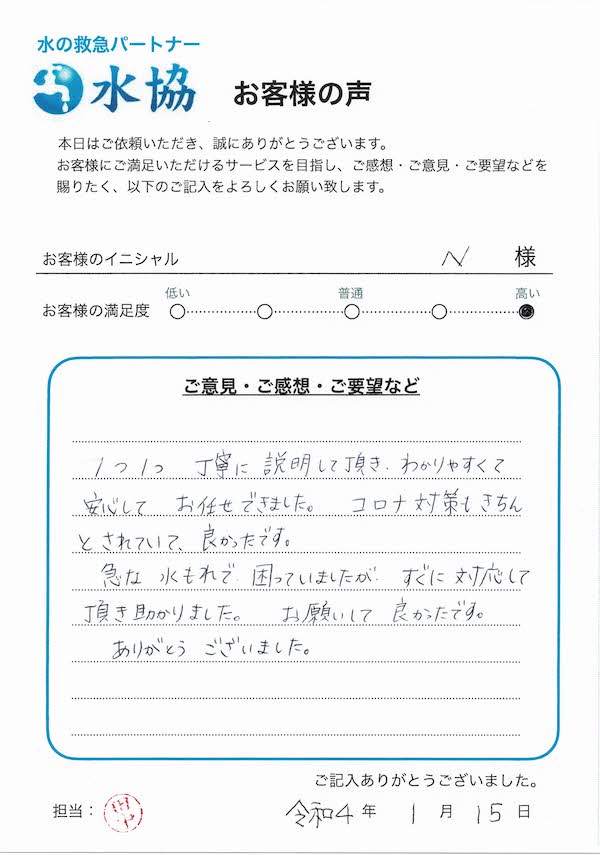 水の救急パートナー
水協
お客様の声
本日はご依頼いただき、誠にありがとうございます。
お客様にご満足いただけるサービスを目指し、ご感想・ご意見・ご要望などを
賜りたく、以下のご記入をよろしくお願い致します。
お客様のイニシャル N 様
低い 普通 高い
お客様の満足度
ご意見・ご感想・ご要望など
1つ1つ 丁寧に 説明して頂き、わかりやすくて
安心して お任せできました。 コロナ対策もきちん
とされていて、良かったです。
急な 水もれで 困っていましたが すぐに 対応して
頂き助かりました。 お願いして 良かったです。
ありがとう ございました。
ご記入ありがとうございました。
担当: 令和4年 1月 15日